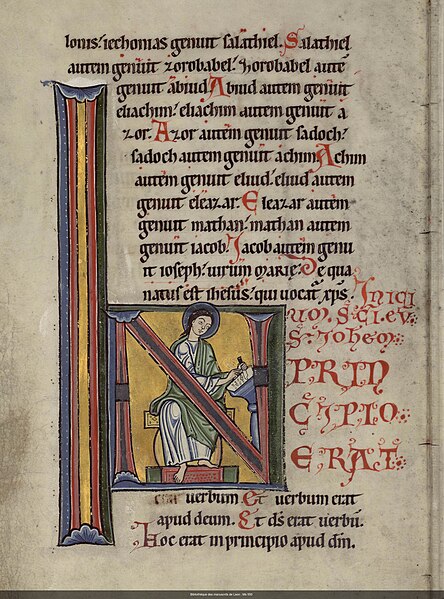 lonis: iechonias genuit salathiel. Salathiel
autem genuit zorobabel: Zorobabel autē
genuit abiud. Abiud autem genuit
eliachim: eliachim autem genuit a
zor. Azor autem genuit sadoch:
sadoch autem genuit achim. Achim
autem genuit eliud: eliud autem
genuit eleazar. Eleazar autem
genuit mathan: mathan autem
genuit iacob. Jacob autem genu
it ioseph: uirum marie: De qua
natus est ihesus: qui uocat xp̄s. Inici
um. S. ci. ev.
S. Johem
IN
PRIN
CIPIO
ERAT
uerbum Et uerbum erat
apud deum. Et ds̄ erat uerbū.
Hoc erat in principio apud dm̄.
Bibliothèque des manuscrits de Laon